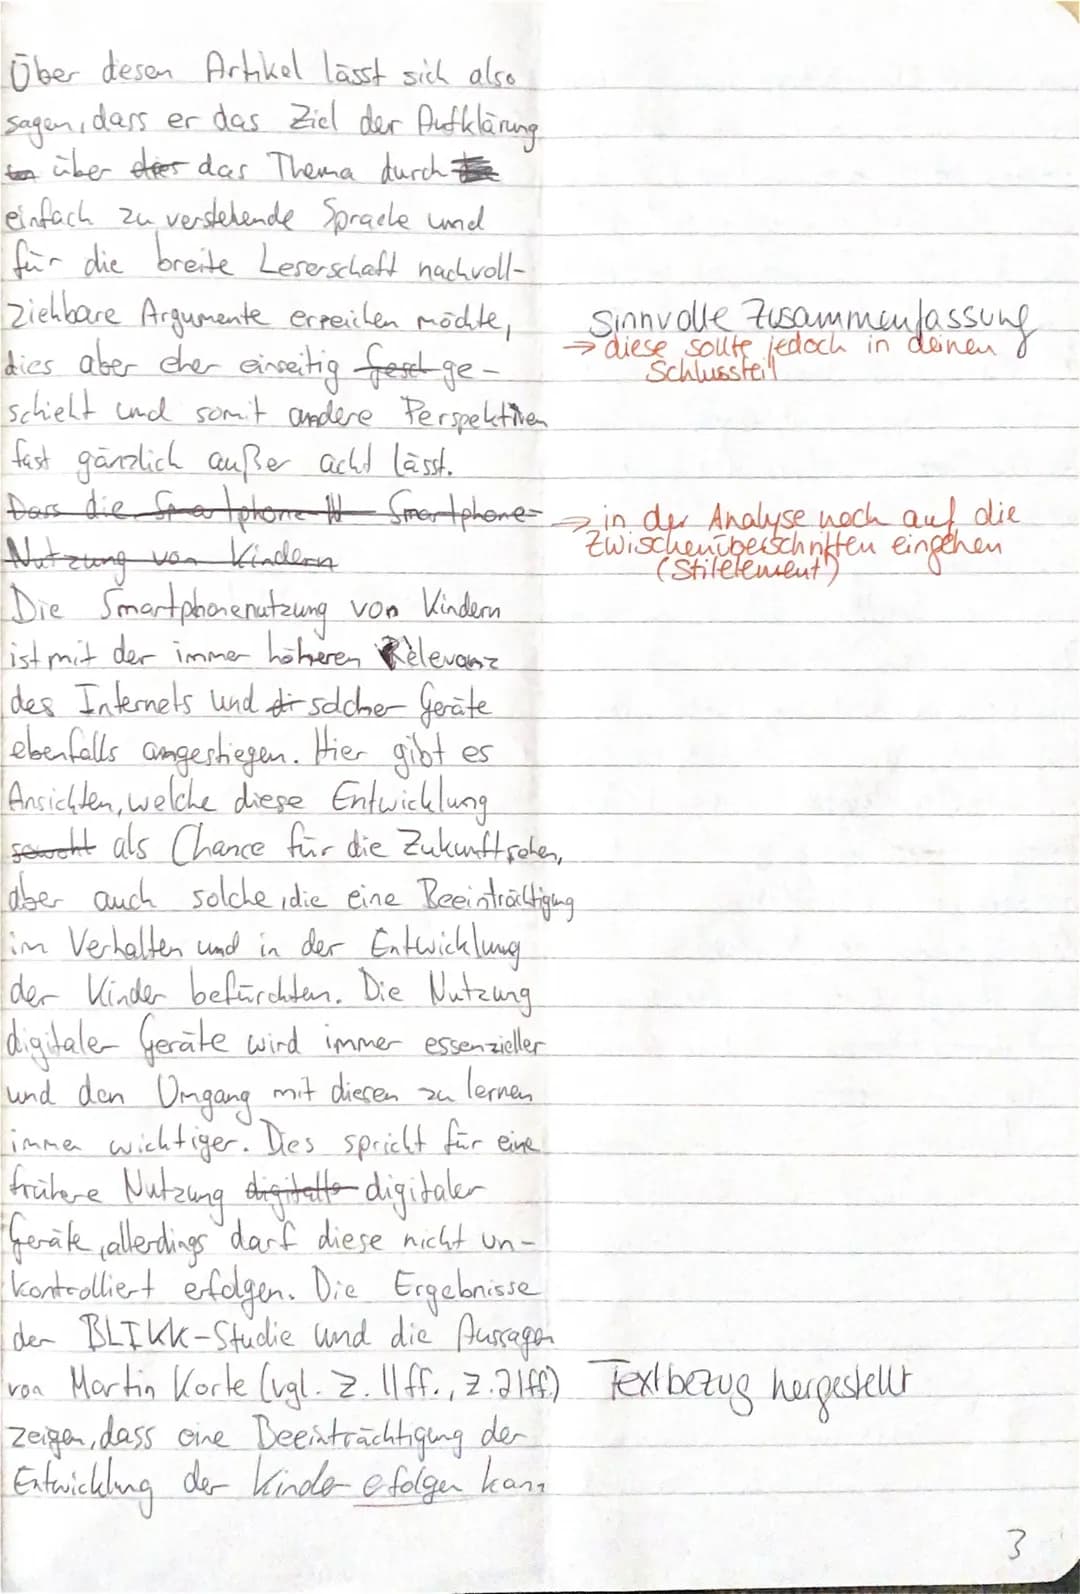 Über desen Artikel lässt sich also
sagen, dass er das Ziel der Aufklärung
über dies das Thema durch
einfach zu verstehende Sprache und
für die breite Leserschaft nachvoll-
ziehbare Argumente erreichen möchte,
sinnvolle Zusammenfassung
dies aber eher einseitig gesch ge-
→ diese sollte jedoch in deinen
Schlussteil
schieht und somit andere Perspektiven
fast gänzlich außer acht lässt.
Dass die Smartphone-N Smartphone-
→ in der Analyse noch auf die
Nutzung von Kindern
Zwischenüberschriften eingehen
(Stilelement!)
Die Smartphonenutzung von Kindern
ist mit der immer höheren Relevanz
des Internets und di solcher Geräte
ebenfalls angestiegen. Hier gibt es
Ansichten, welche diese Entwicklung
sowohl als Chance für die Zukunft sehen,
aber auch solche, die eine Beeinträchtigung
im Verhalten und in der Entwicklung
der Kinder befürchten. Die Nutzung
digitaler Geräte wird immer essenzieller
und den Umgang mit diesen zu lernen
immer wichtiger. Dies spricht für eine
frühere Nutzung digitalle digitaler
Geräte, allerdings darf diese nicht un-
kontrolliert erfolgen. Die Ergebnisse
der BLIKK-Studie und die Aussagen
von Martin Korte (vgl. Z. 11ff., Z. 21ff.)
Textbezug hergestellt
zeigen, dass eine Beeinträchtigung der
Entwicklung der Kinder efolgen kann
3